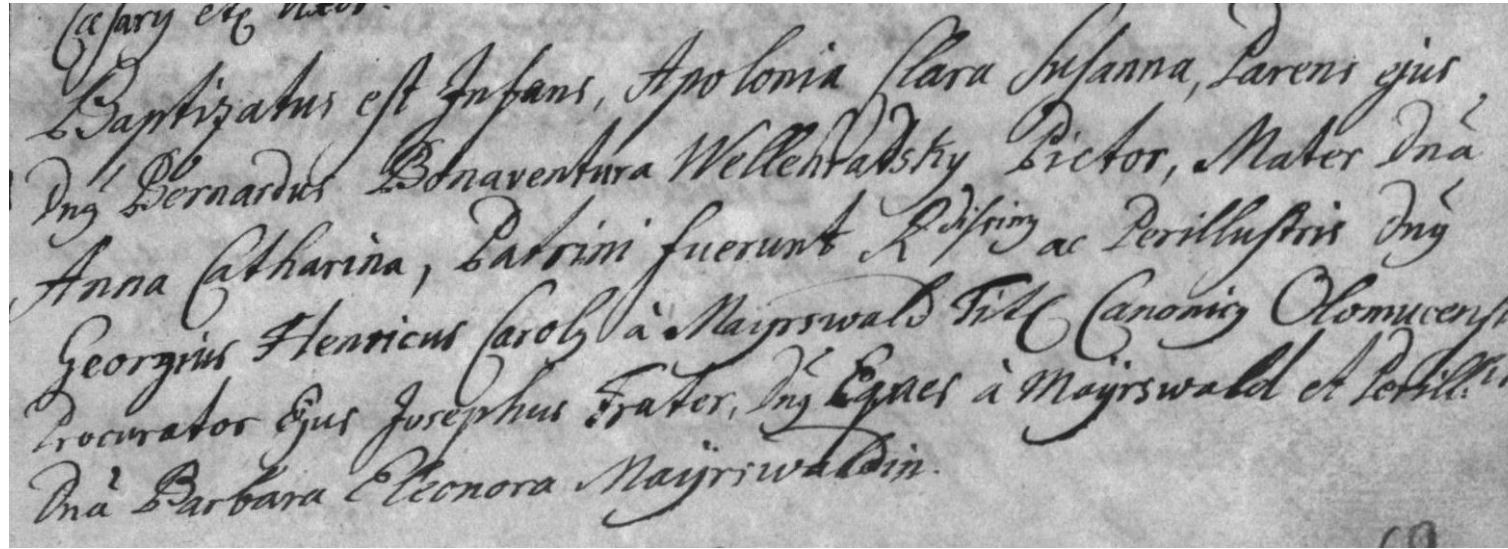 Cæsarij etc uxor.
Baptizatus est Infans, Apolonia Clara Susanna, Parens ejus
Dng Bernardus Bonaventura Wellehradsky Pictor, Mater Dnã
Anna Catharina, Patrini fuerunt Rdissimg ac Perillustris Dng
Georgius Henricus Carolg à Mayrswald Titt Canonicg Olomucens
Procurator Ejus Josephus Frater, Dng Eques à Maÿrswald et Perill:
Dnã Barbara Eleonora Maÿrswaldin.